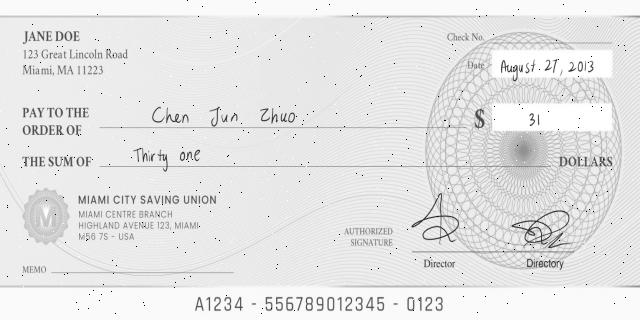 JANE DOE
123 Great Lincoln Road
Miami, MA 11223
Check No.
Date August 27, 2013
PAY TO THE
ORDER OF Chen Jun Zhuo
$ 31
THE SUM OF Thirty one DOLLARS
MIAMI CITY SAVING UNION
MIAMI CENTRE BRANCH
HIGHLAND AVENUE 123, MIAMI
M56 7S - USA
AUTHORIZED
SIGNATURE
Director Directory
MEMO
A1234 - 556789012345 - 0123